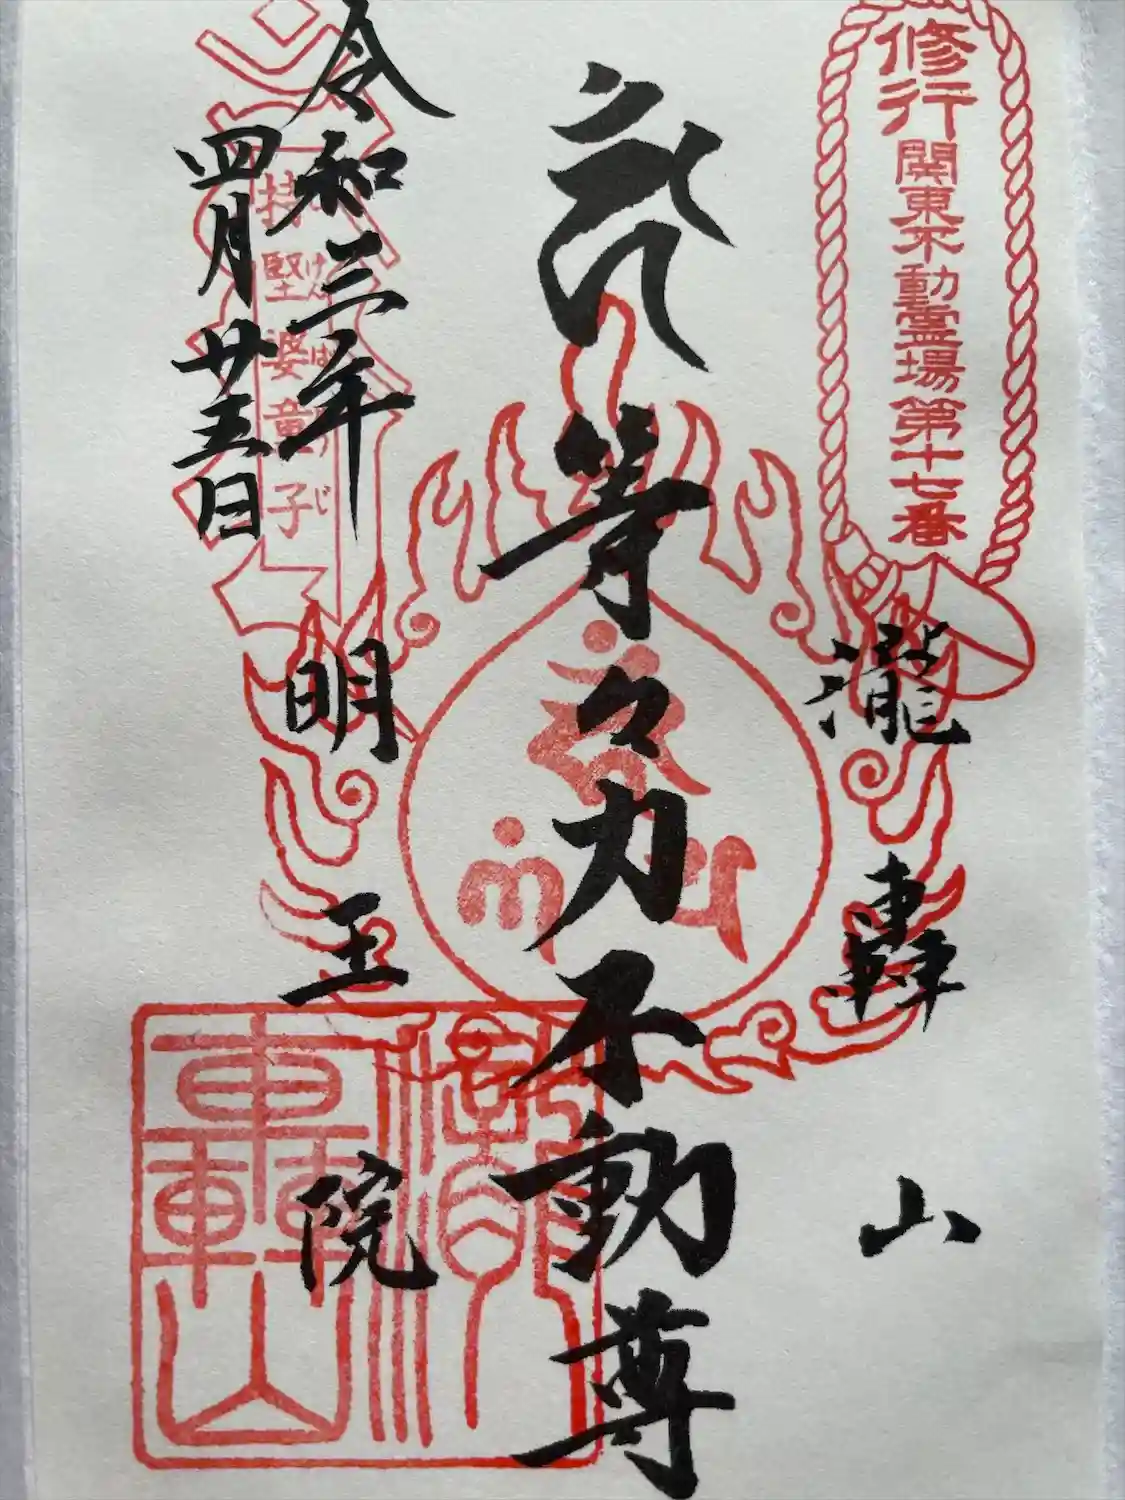 修行
関東不動霊場第十七番
瀧轟山
等々力不動尊
明王院
令和三年
四月廿五日
持堅婆童子
けんばじ
瀧轟山